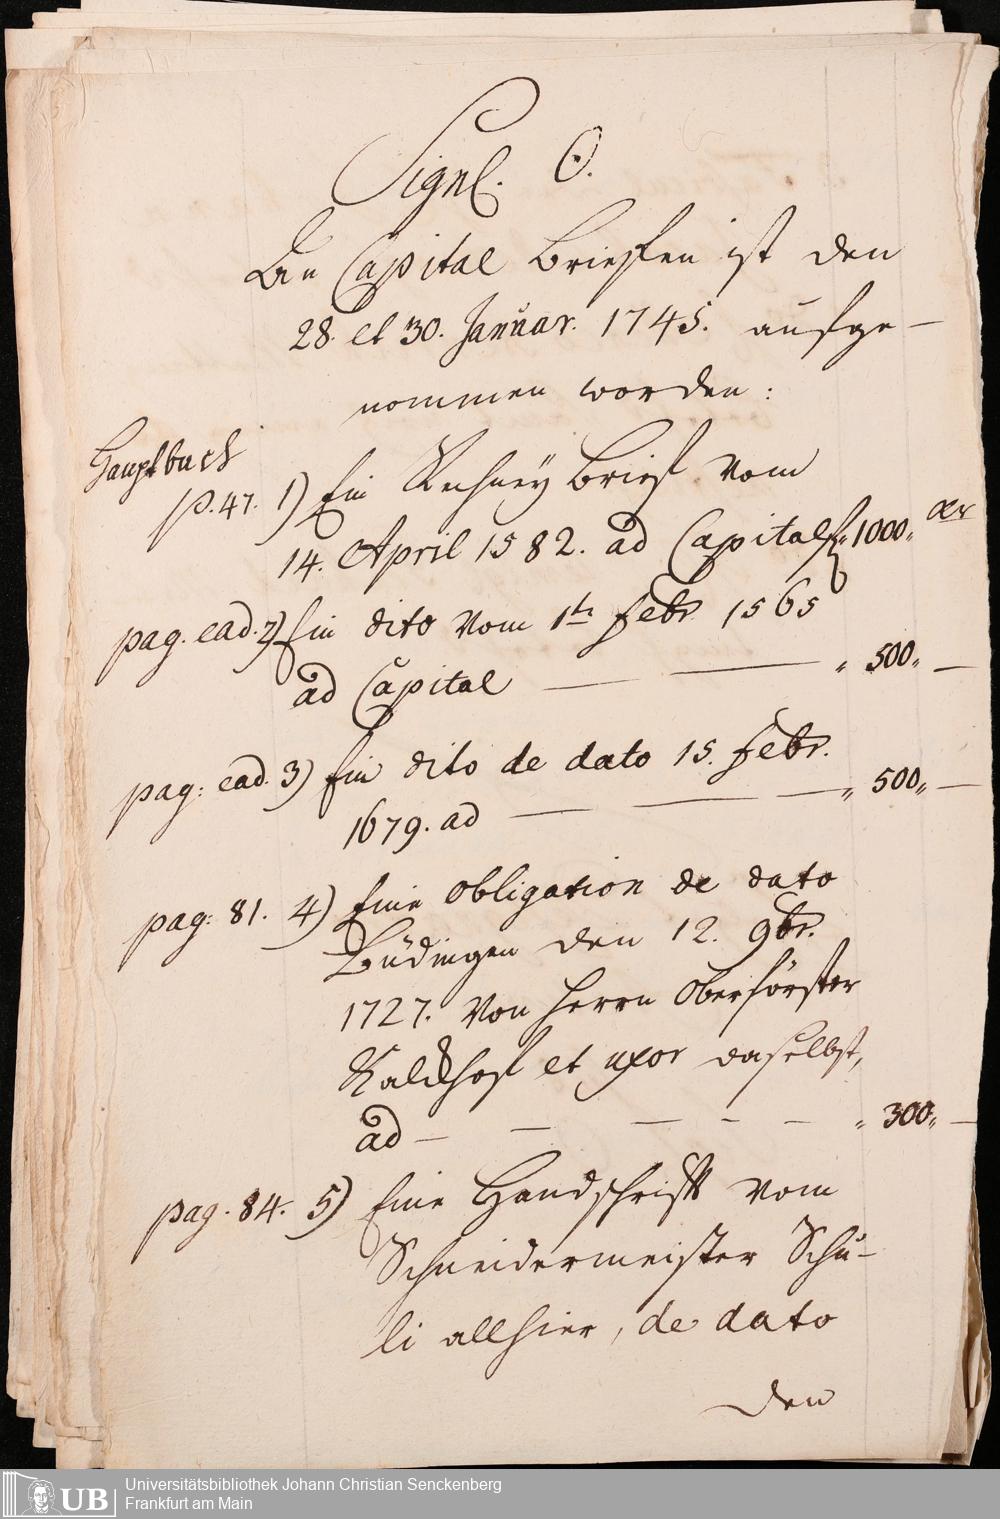 Signl. O.
An Capital Brieffen ist den
28. et 30. Januar. 1745. aufge-
nommen worden:
Hauptbuch
p. 47. 1) Ein Rechney Brief vom
14. April 1582. ad Capital f„ 1000„ xr
pag. ead. 2) Ein dito vom 1ten Febr. 1565
ad Capital — — „ 500„ —
pag: ead. 3) Ein dito de dato 15. Febr.
1679. ad — — — „ 500„ —
pag: 81. 4) Eine Obligation de dato
Büdingen den 12. 9br.
1727. von Herrn Oberförster
Kaldhof et uxor daselbst,
ad — — — — — „ 300„ —
pag. 84. 5) Eine Handschrifft vom
Schneidermeister Schu-
li allhier, de dato
den
Universitätsbibliothek Johann Christian Senckenberg
Frankfurt am Main
UB